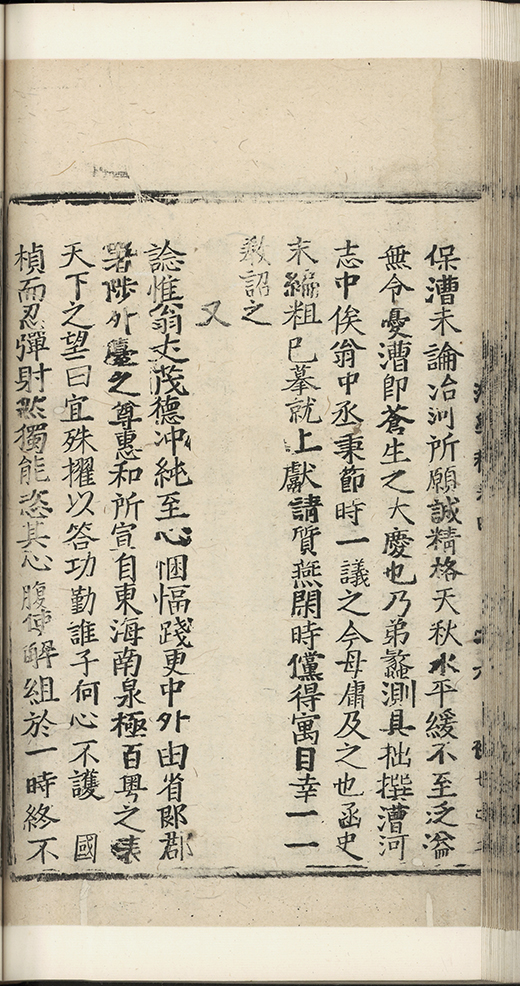 保漕未論冶河所願誠精格天秋水平緩不至泛溢
無令憂漕即蒼生之大慶也乃弟蠡測具拙撰漕河
志中俟翁中丞秉節時一議之今毋庸及之也函史
末編粗已摹就上獻請質燕閑時儻得寓目幸一一
教詔之
又
諗惟翁丈茂德冲純至心悃愊踐更中外由省郎郡
署陟外臺之尊惠和所宣自東海南泉極百粵之表
天下之望曰宜殊擢以答功勤誰子何心不護 國
楨而忍彈射然獨能恣其心腹俾解組於一時終不